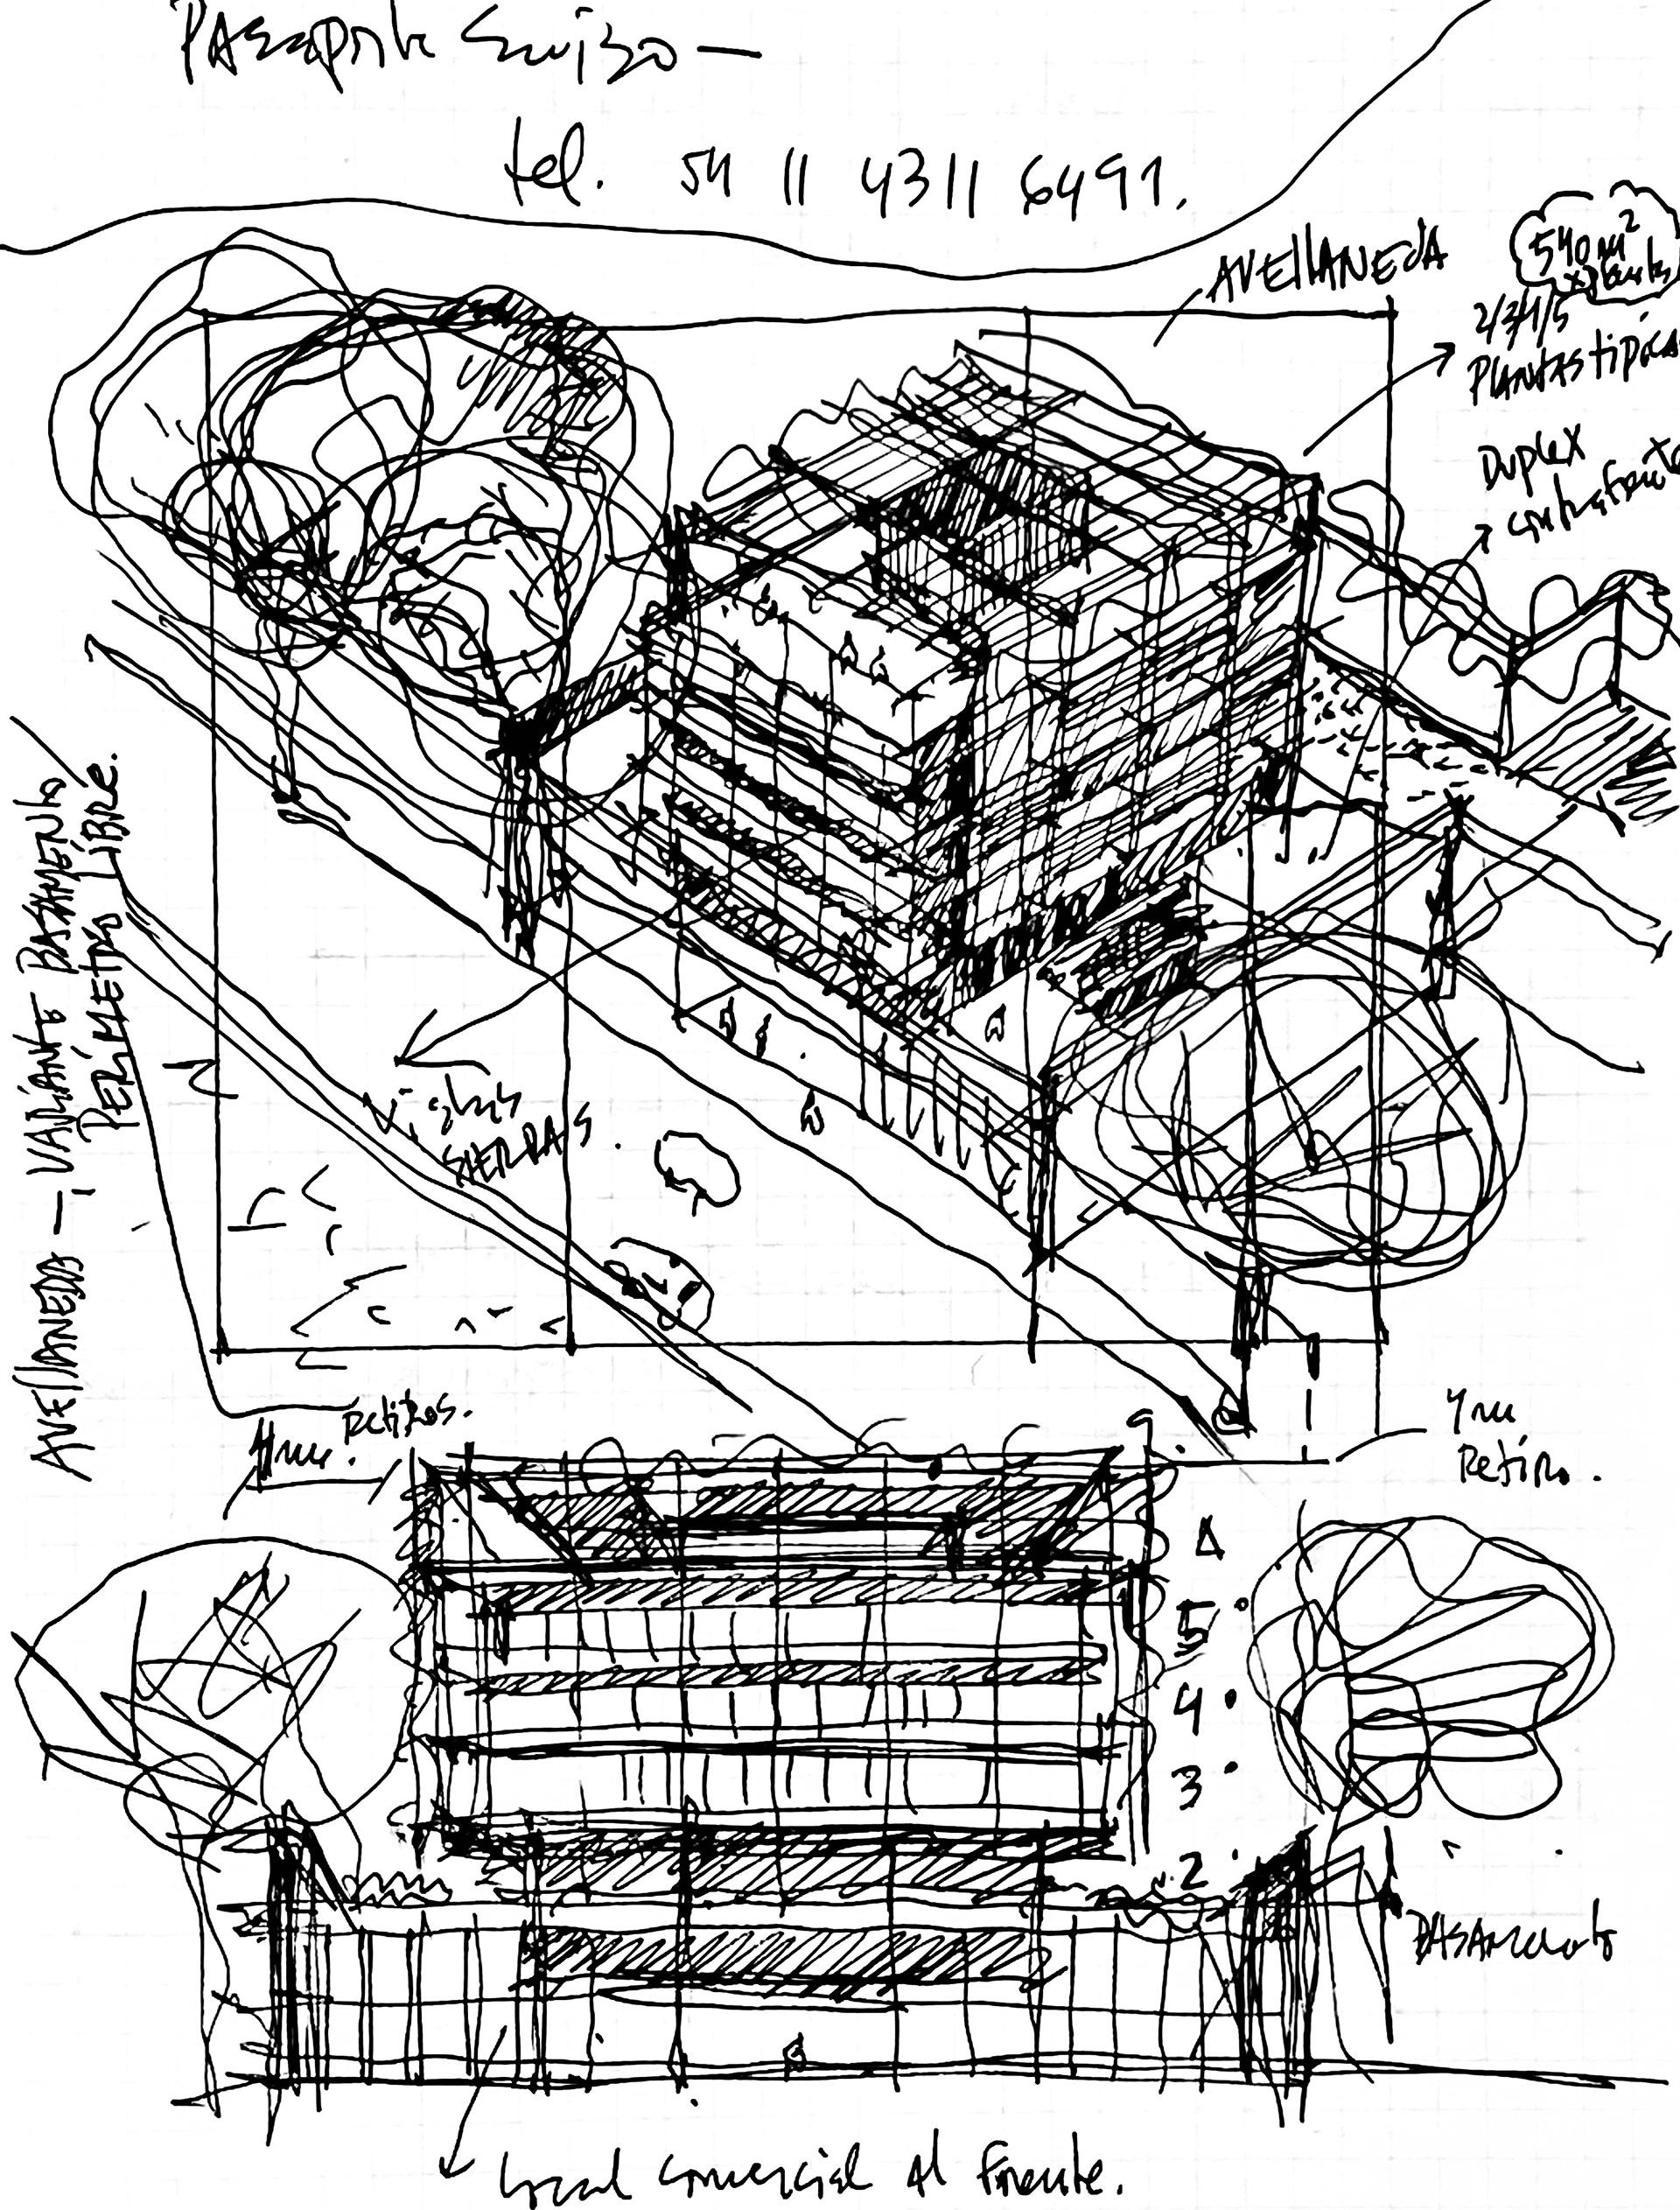 Passaporte Suizo —
tel. 54 11 4311 6491.
AVELLANEDA
540 m²
x planta
2/3/4/5
PLANTAS tipicas
Duplex
contrafrente
AVELLANEDA — VARIANTE BASAMENTO
PERÍMETRO LIBRE.
SIERRAS.
4m. Retiros.
4m
Retiro.
5°
4°
3°
2°
BASAMENTO
Local comercial al frente.